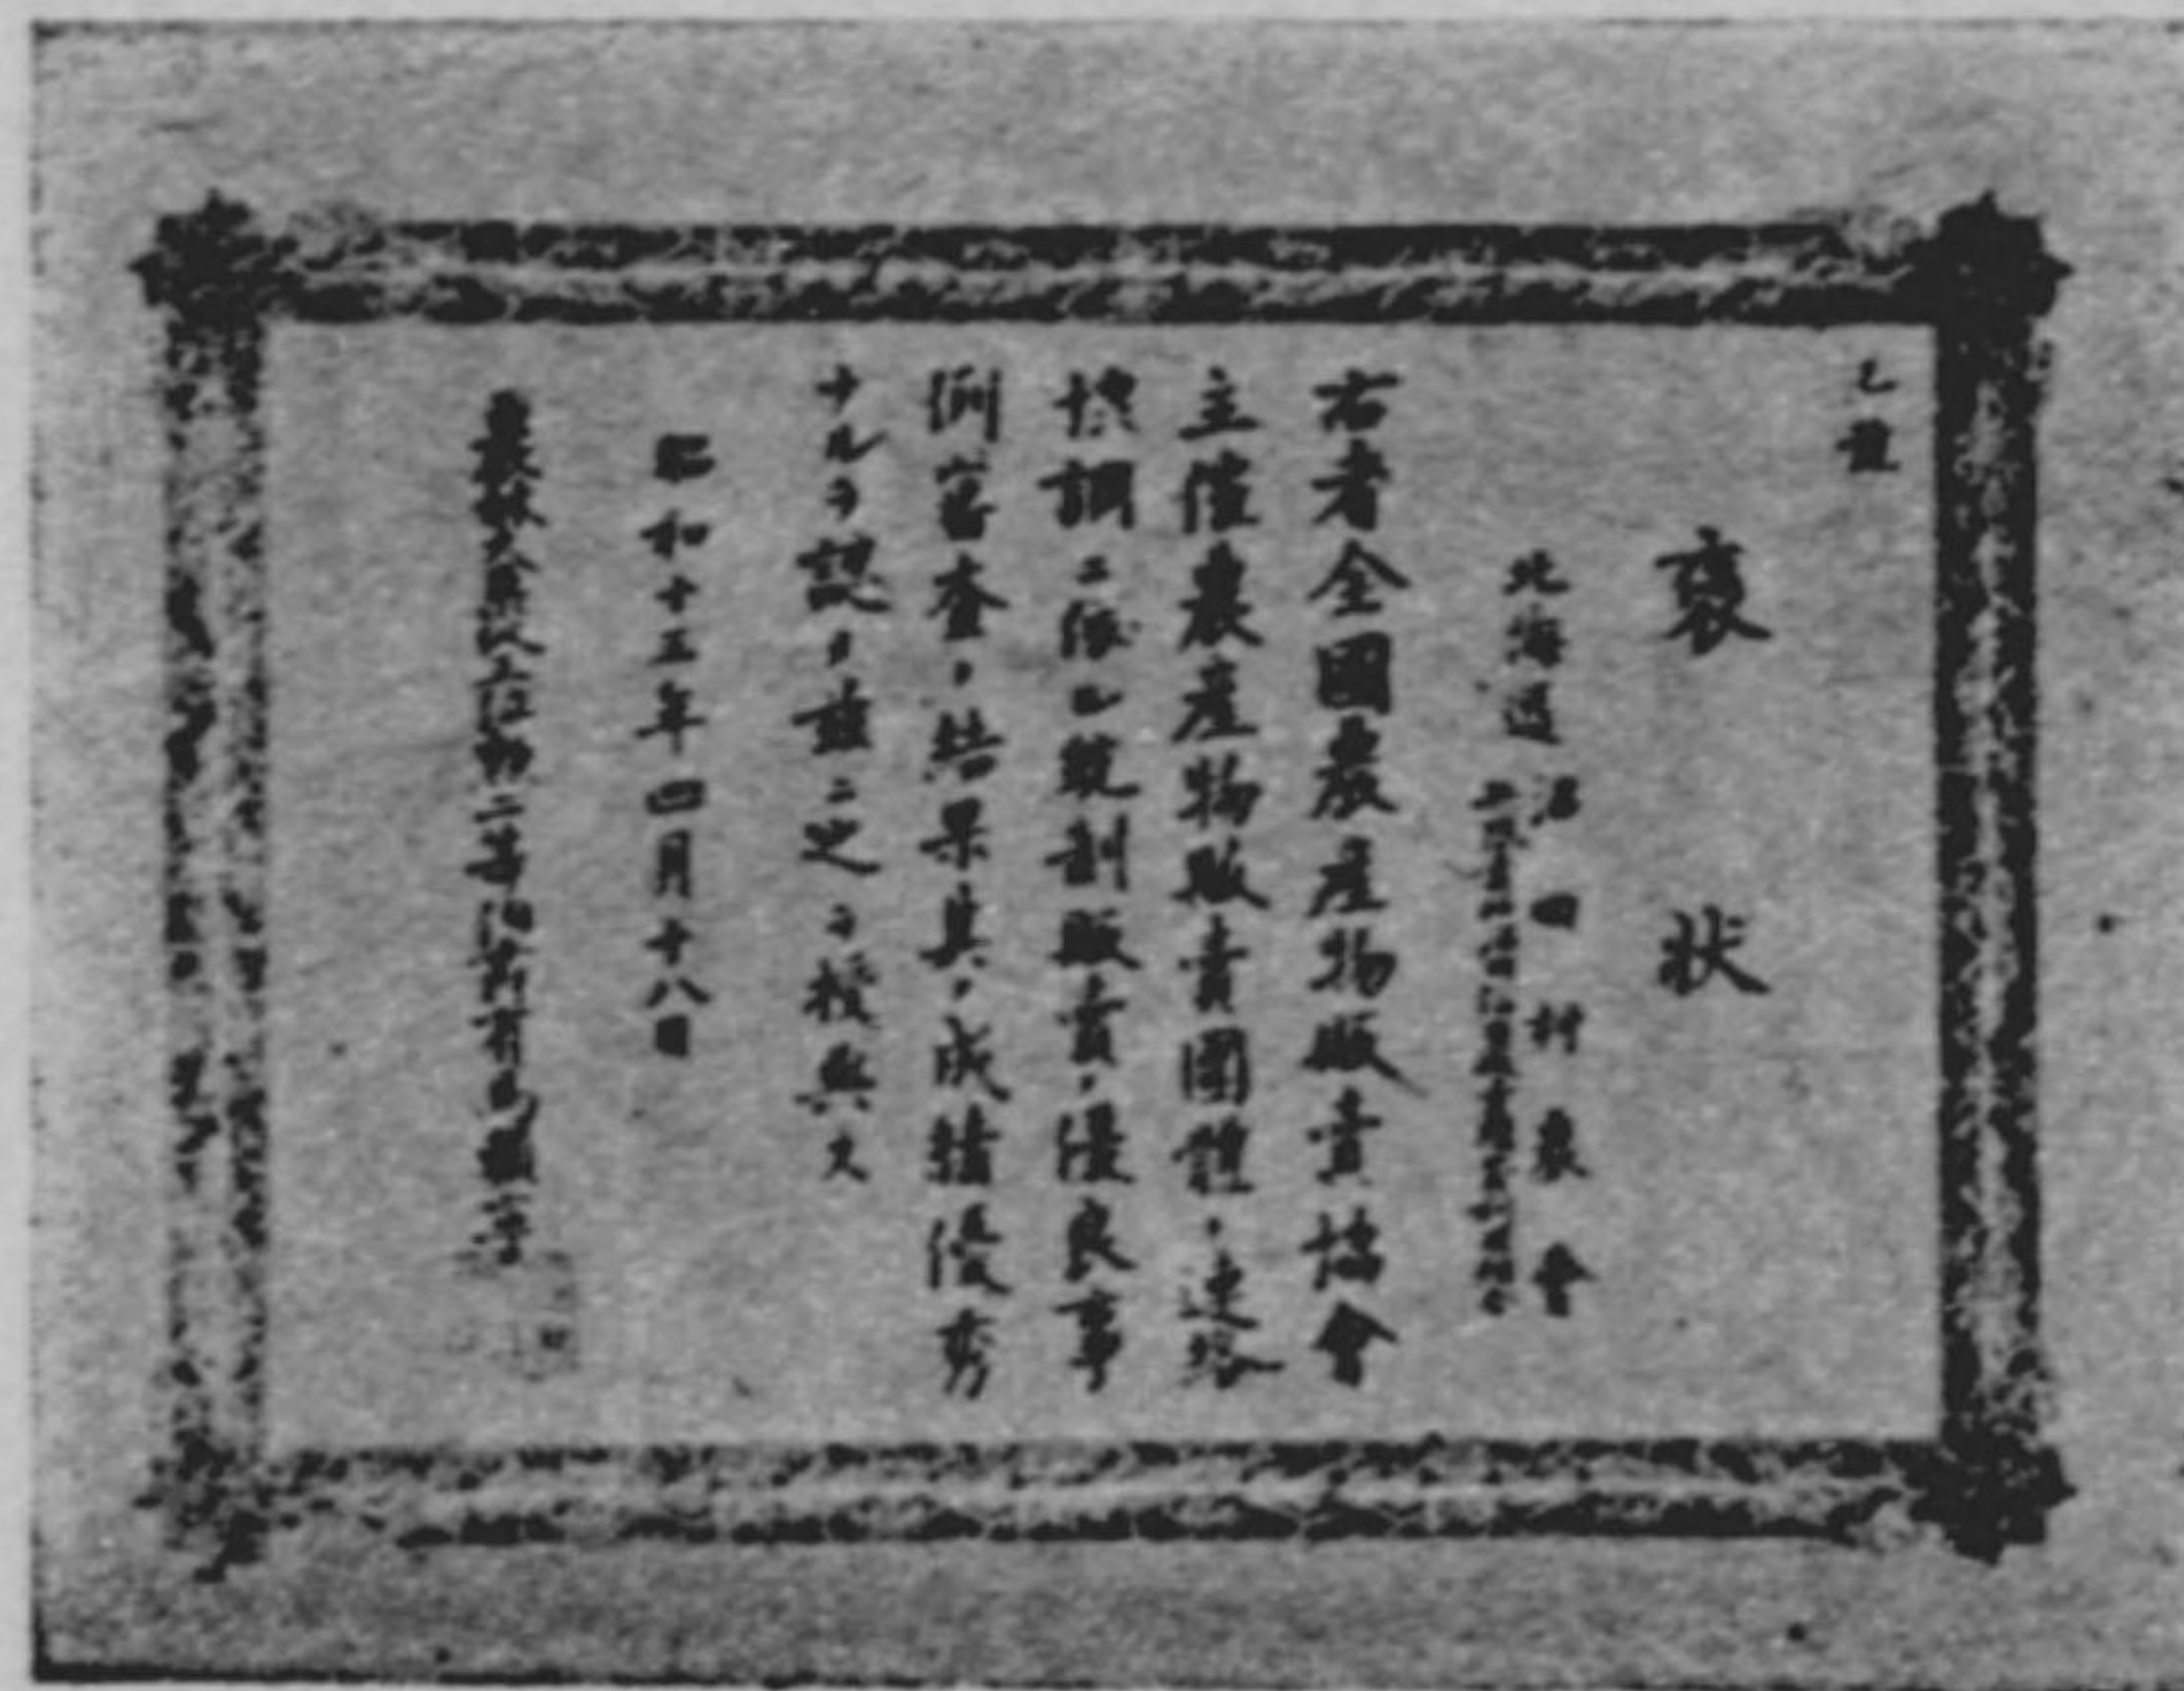 乙種
褒状
北海道沼田村農會
右者全國農産物販賣協會
主催農産物販賣團體ノ連絡
協調ニ依ル統制販賣ノ優良事
例審査ノ結果其ノ成績優秀
ナルヲ認メ茲ニ之ヲ授與ス
昭和十五年四月十八日
農林大臣從三位勲二等伯爵有馬頼寧